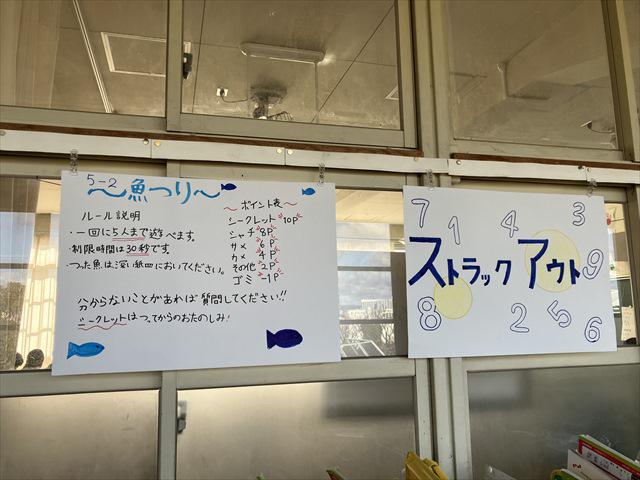 5-2
～魚つり～
ルール説明
・一回に5人まで遊べます。
・制限時間は30秒です
・つった魚は深い紙皿においてください。
～ポイント表～
シークレット 10P
シャチ 8P
サメ 6P
カメ 4P
その他 2P
ゴミ -1P
分からないことがあれば質問してください!!
シークレットはつってからのおたのしみ!
7 1 4 3
ストラックアウト
9
8 2 5 6